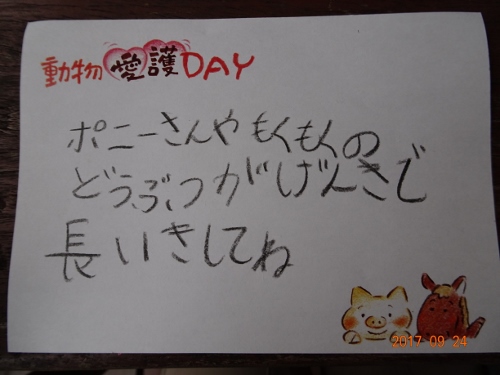 動物愛護DAY
ポニーさんやもくもくの
どうぶつがげんきで
長いきしてね
2017 09 24